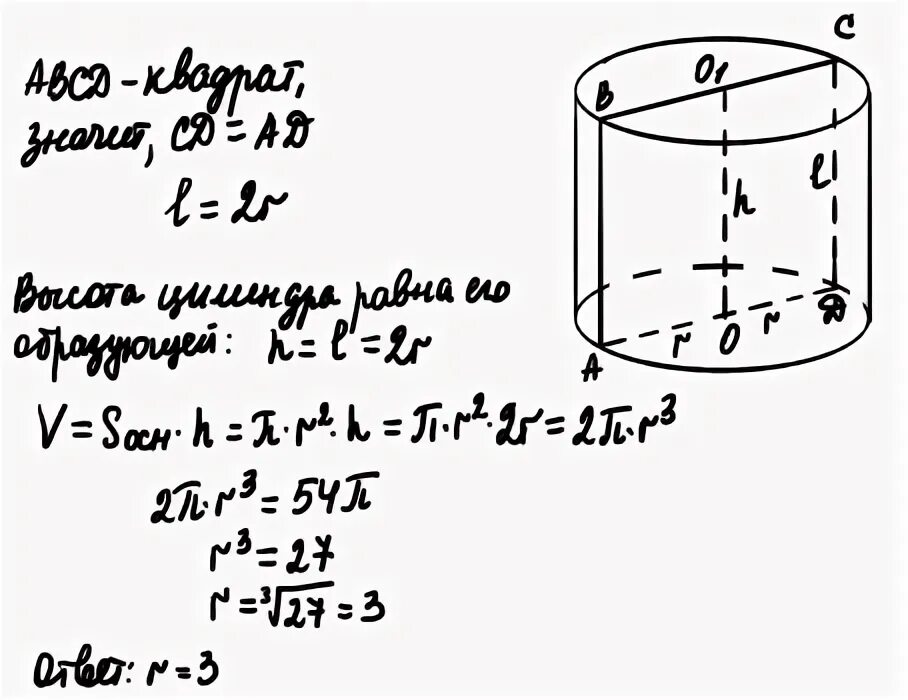 ABCD - квадрат,
значит, CD = AD
l = 2r
Высота цилиндра равна его
образующей: h = l = 2r
V = Sосн · h = π · r² · h = π · r² · 2r = 2π · r³
2π · r³ = 54π
r³ = 27
r = ³√27 = 3
Ответ: r = 3
C
O₁
B
l
h
D
r
O
r
A